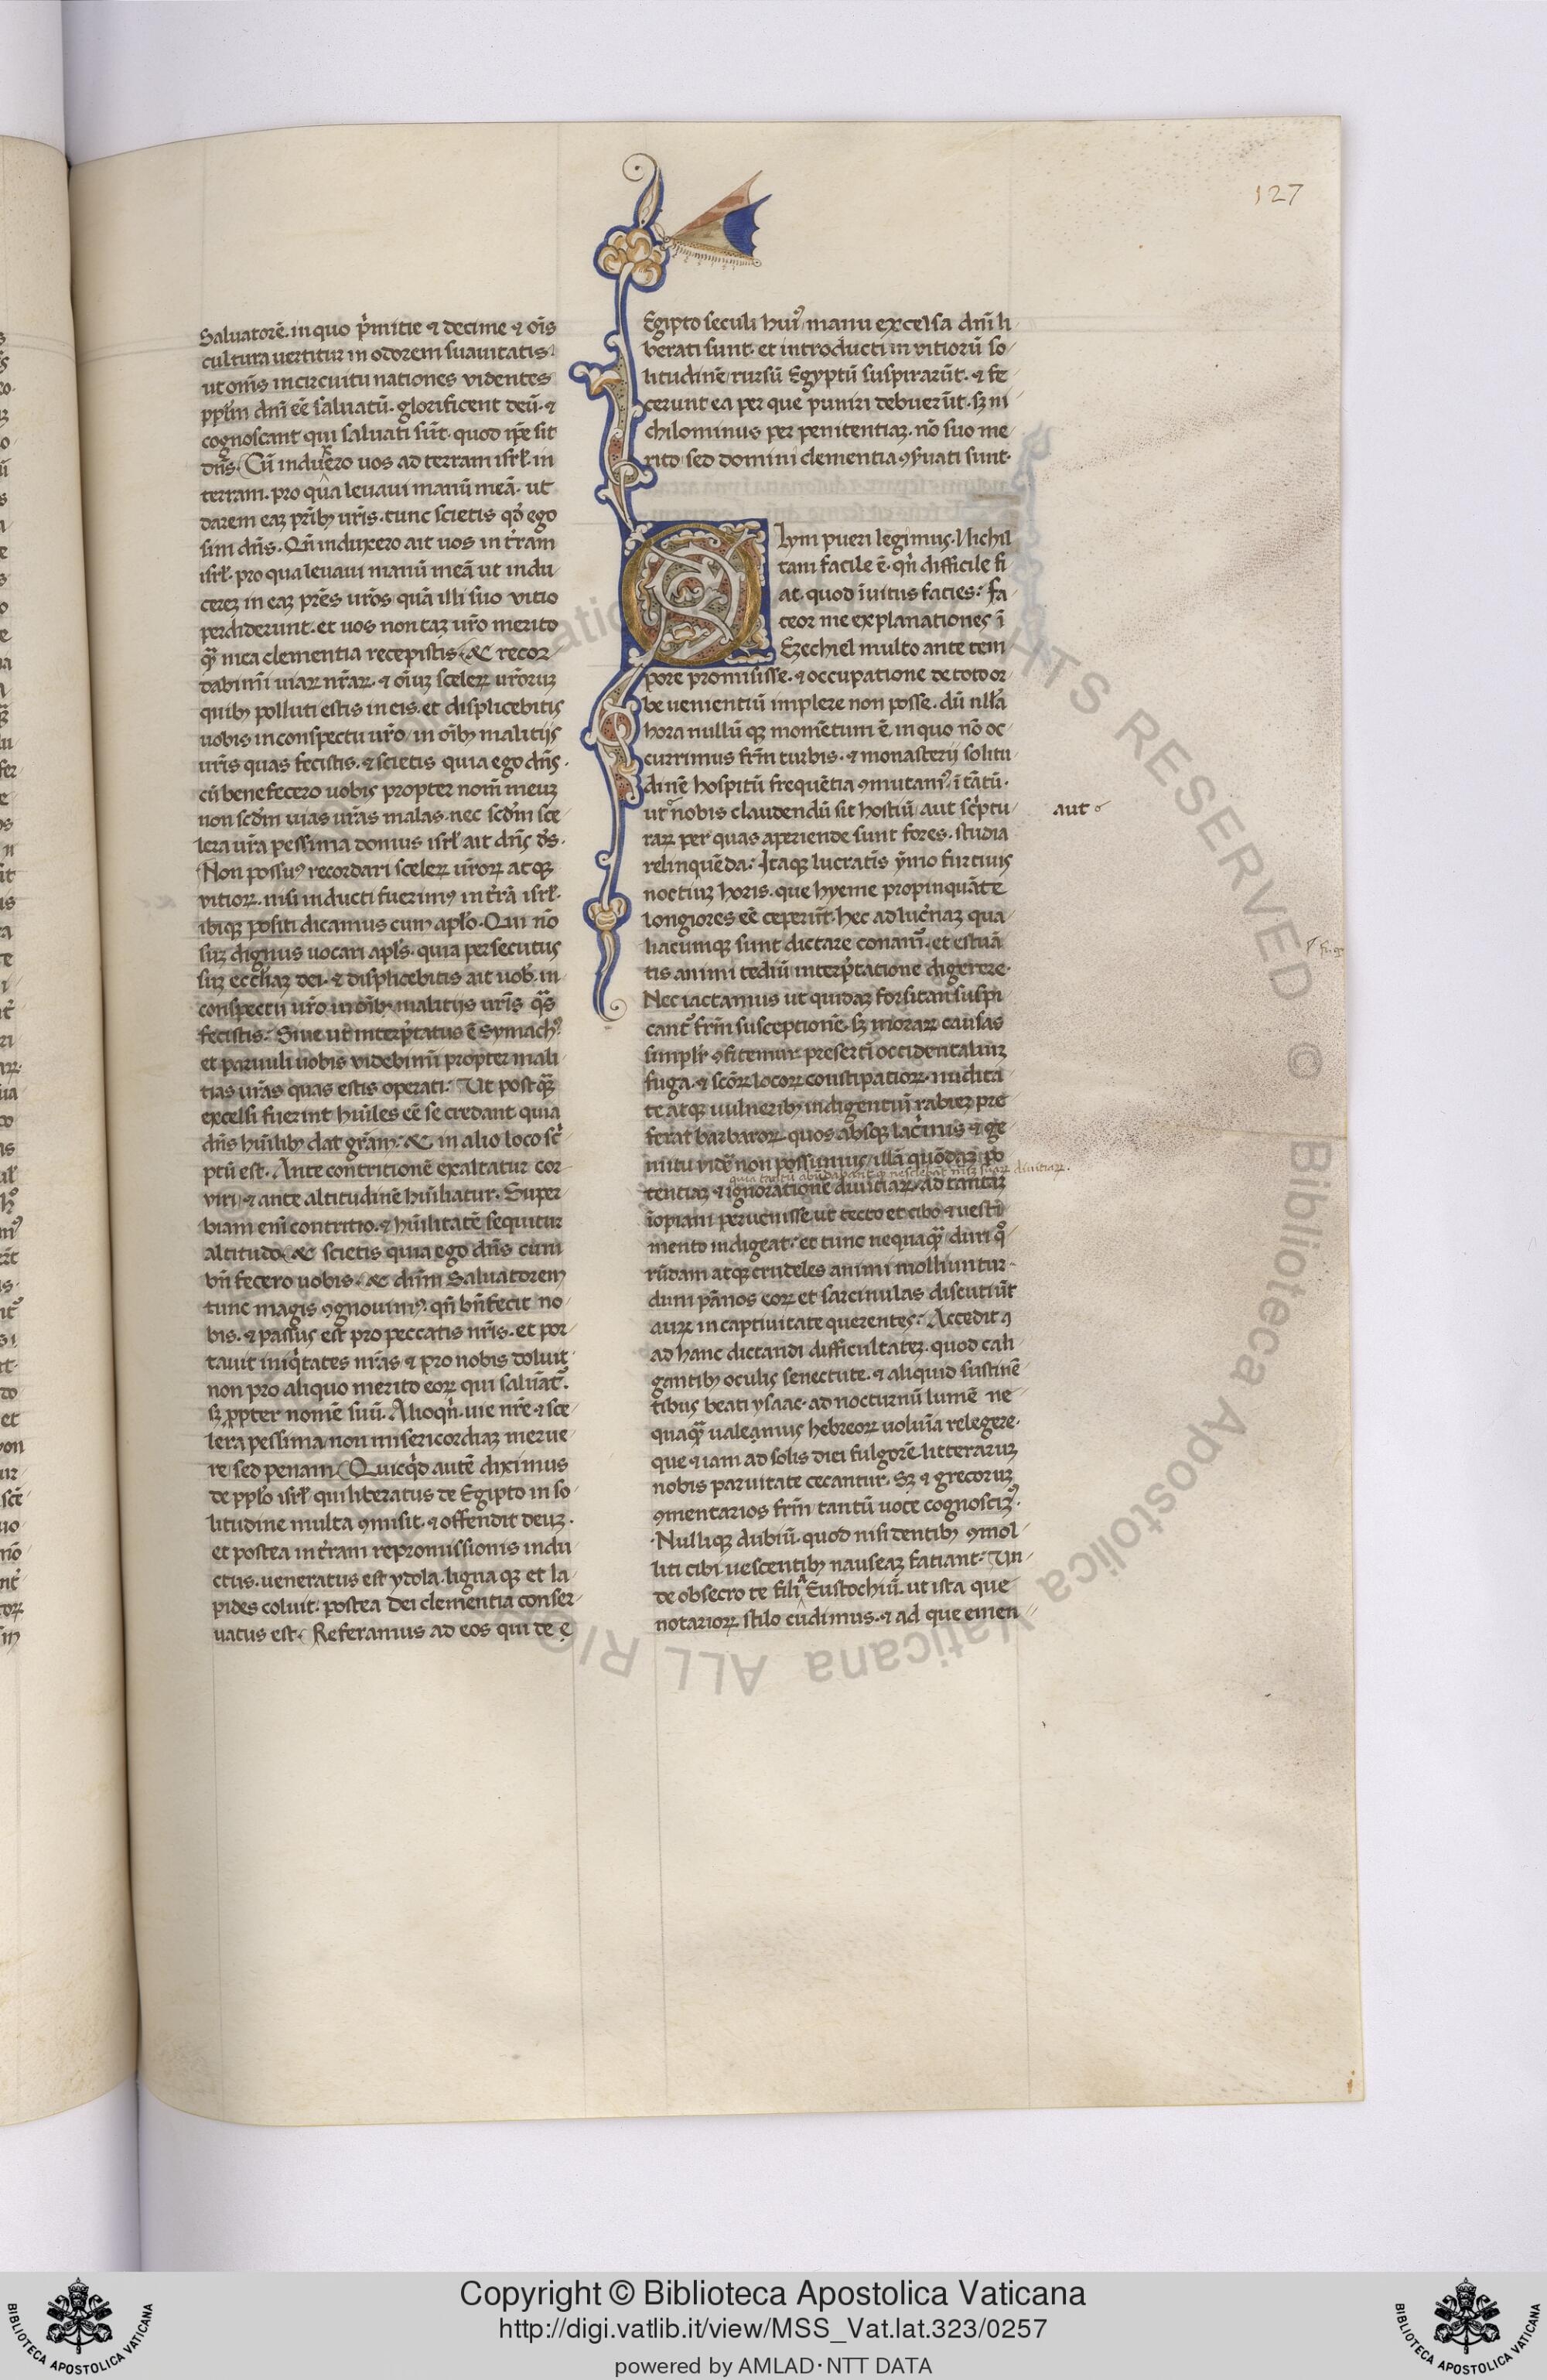 127
Saluatorē. in quo p̄mitie & decime & oīs
cultura uertitur in odorem suauitatis.
ut om̄s in circuitu nationes videntes
pplm̄ dnī eē saluatū. glorificent deū. &
cognoscant qui saluati sūt. quod ip̄e sit
dn̄s. Cū induxero uos ad terram isrl̄. in
terram. pro qua leuaui manū meā. ut
darem eaꝫ prībꝫ ur̄is. tunc scietis qđ ego
sim dn̄s. Qn̄ induxero ait uos in tr̄am
isrl̄. pro qua leuaui manū meā ut indu
cereꝫ in eaꝫ prēs ur̄os quā illi suo vitio
perdiderunt. et uos non taꝫ ur̄o merito
qꝫ mea clementia recepistis. &c recor
dabimī uiaꝝ nr̄aꝝ. & oīuꝫ sceleꝝ ur̄oruꝫ
quibꝫ polluti estis in eis. et displicebitis
uobis in conspectu ur̄o in oībꝫ malitijs
ur̄is quas fecistis. & scietis quia ego dn̄s.
cū benefecero uobis propter nom̄ meuꝫ
non scđm uias ur̄as malas. nec scđm sce
lera ur̄a pessima domus isrl̄ ait dn̄s ds̄.
Non possuꝰ recordari sceleꝝ ur̄oꝝ atqꝫ
vitioꝝ. nisi inducti fuerimꝰ in tr̄ā isrl̄.
ibiqꝫ positi dicamus cum apl̄o. Qui nō
suꝫ dignus uocari apl̄s. quia persecutus
suꝫ eccliaꝫ dei. & displicebitis ait uob̄. in
conspectu ur̄o in oībꝫ malitijs ur̄is qͣs
fecistis. Siue ut interp̄tatus ē Symachꝰ
et paruuli uobis videbimī propter mali
tias ur̄as quas estis operati. Ut postqꝫ
excelsi fuerint huīles eē se credant quia
dn̄s huīlibꝫ dat grām. &c in alio loco sc̄
ptū est. Ante contritionē exaltatur cor
viri. & ante altitudinē huīliatur. Super
biam enī contritio. & huīlitatē sequitur
altitudo. &c scietis quia ego dn̄s cum
bn̄ fecero uobis. &c dnm̄ Saluatorem
tunc magis ꝯgnouimꝰ. qn̄ bn̄fecit no
bis. & passus est pro peccatis nr̄is. et por
tauit iniq̄tates nr̄as & pro nobis doluit
non pro aliquo merito eoꝝ qui saluāt̄.
sꝫ ꝓpter nomē suū. Alioqn̄. uie nr̄e & sce
lera pessima non misericordiaꝫ merue
re sed penam. Quicq̄d autē diximus
de pplo isrl̄ qui liberatus de Egipto in so
litudine multa ꝯmisit. & offendit deuꝫ.
et postea in tr̄am repromissionis indu
ctus. ueneratus est ydola. ligna qꝫ et la
pides coluit. postea dei clementia conser
uatus est. Referamus ad eos qui de ę
Egipto seculi huiꝰ manu excelsa dnī li
berati sunt. et introducti in vitiorū so
litudinē rursū Egyptū suspirarūt. & fe
cerunt ea per que puniri debuerūt. sꝫ ni
chilominus per penitentiaꝫ. nō suo me
rito sed domini clementia ꝯs̄uati sunt.
lym pueri legimus. Nichil
tam facile ē. qn̄ difficile fi
at. quod īuitus facies. Fa
teor me explanationes ī
Ezechiel multo ante tem
pore promisisse. & occupatione de toto or
be uenientiū implere non posse. dū nlla
hora nullū qꝫ momētum ē in quo nō oc
currimus frm̄ turbis. & monasterij solitu
dinē hospitū frequētia ꝯmutamꝰ. ī tātū.
ut nobis claudendū sit hostiū aut sc̄ptu
raꝝ per quas aperiende sunt fores. studia
relinquēda. Itaqꝫ lucratis ȳmo furtiuis
noctiuꝫ horis. que hyeme propinquāte
longiores eē ceperūt. hec ad luc̄naꝫ qua
liacumqꝫ sunt dictare conamꝰ. et estuā
tis animi tediū interp̄tatione digerere.
Nec iactamus ut quidaꝫ forsitan suspi
cant̄ frm̄ susceptionē. sꝫ moraꝝ causas
simplr̄ ꝯfitemur. presertī occidentaliuꝫ
fuga. & scōꝝ locoꝝ constipatioꝝ. nudita
te atqꝫ uulneribꝫ indigentuī rabieꝫ pre
ferat barbaroꝝ. quos absqꝫ lac̄mis & ge
mitu videre non possumus. illā quōdaꝫ po
quia tantū
tentiaꝫ & ignorationē diuitiaꝝ. ad tantuꝫ
īopiam peruenisse. ut tecto et cibo & uesti
mento indigeat. et tunc nequaqꝫ duri qꝰ
rūdam atqꝫ crudeles animi molliuntur.
dum pānos eoꝝ et sarcinulas discutiūt
auꝝ in captiuitate querentes. Accedit
ad hanc dictandi difficultateꝫ. quod cali
gantibꝫ oculis senectute. & aliquid sustinē
tibus beati ysaac. ad nocturnū lumē ne
quaqꝫ ualeamus hebreoꝝ uoluīa relegere.
que & iam ad solis diei fulgorē litteraruꝫ
nobis paruitate cecantur. Sꝫ & grecoruꝫ
ꝯmentarios frm̄ tantū uoce cognosciꝫꝰ.
Nulliqꝫ dubiū. quod nisi dentibꝫ ꝯmol
liti cibi uescentibꝫ nauseaꝫ fatiant. Un
de obsecro te filia Eustochiū. ut ista que
notarioꝝ stilo cudimus. & ad que emen
aut
Copyright © Biblioteca Apostolica Vaticana
http://digi.vatlib.it/view/MSS_Vat.lat.323/0257
powered by AMLAD·NTT DATA
BIBLIOTECA APOSTOLICA VATICANA
BIBLIOTECA APOSTOLICA VATICANA